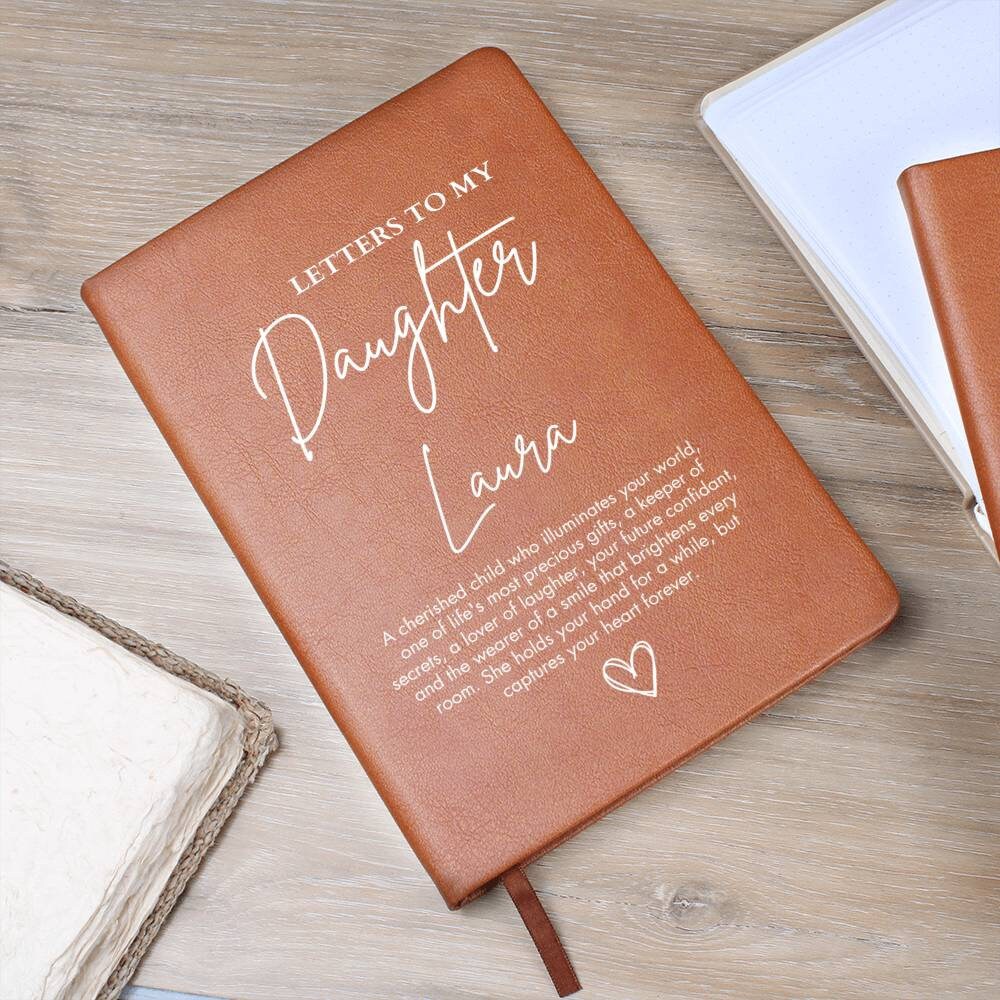 LETTERS TO MY
Daughter
Laura
A cherished child who illuminates your world,
one of life's most precious gifts, a keeper of
secrets, a lover of laughter, your future confidant,
and the wearer of a smile that brightens every
room. She holds your hand for a while, but
captures your heart forever.